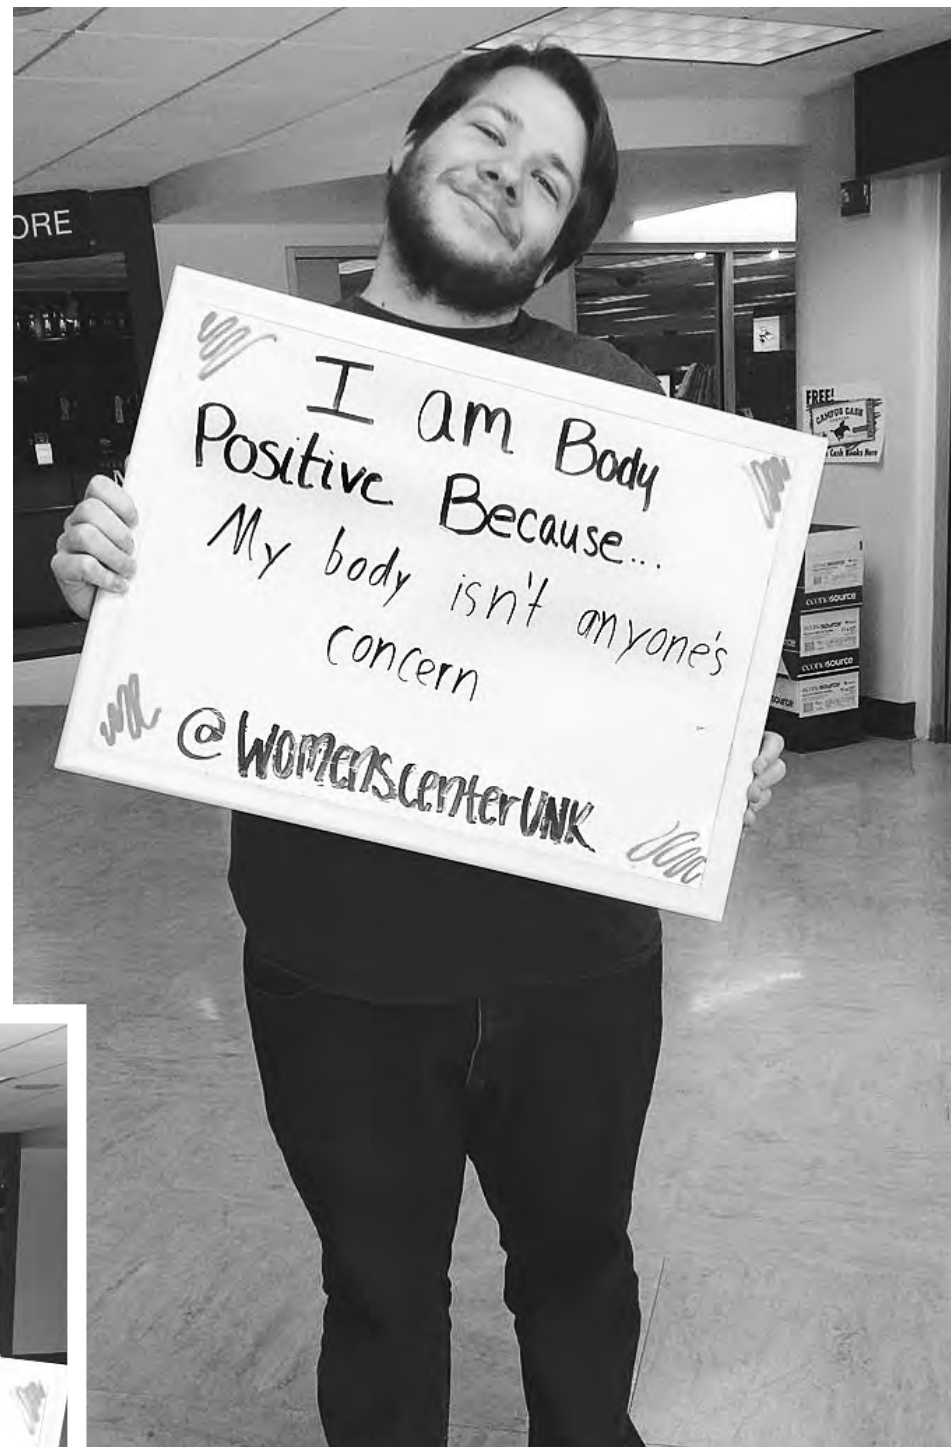 ORE
I am Body
Positive Because...
My body isn't anyone's
concern
@WomenscenterUNK
FREE!
CAMPUS CASH
Cash Books Here
econosource
econosource
econosource
source